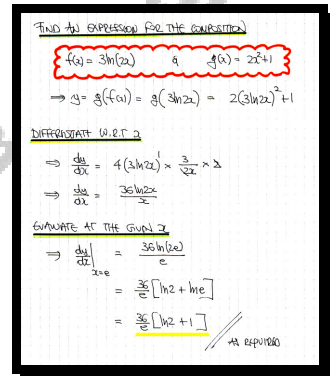 FIND AN EXPRESSION FOR THE COMPOSITION
f(x) = 3ln(2x) & g(x) = 2x²+1
⇒ y = g(f(x)) = g(3ln2x) = 2(3ln2x)²+1
DIFFERENTIATE W.R.T x
⇒ dy/dx = 4(3ln2x)¹ × 3/2x × 2
⇒ dy/dx = 36ln2x/x
EVALUATE AT THE GIVEN x
⇒ dy/dx|x=e = 36ln(2e)/e
= 36/e [ln2 + lne]
= 36/e [ln2 + 1]
AS REQUIRED